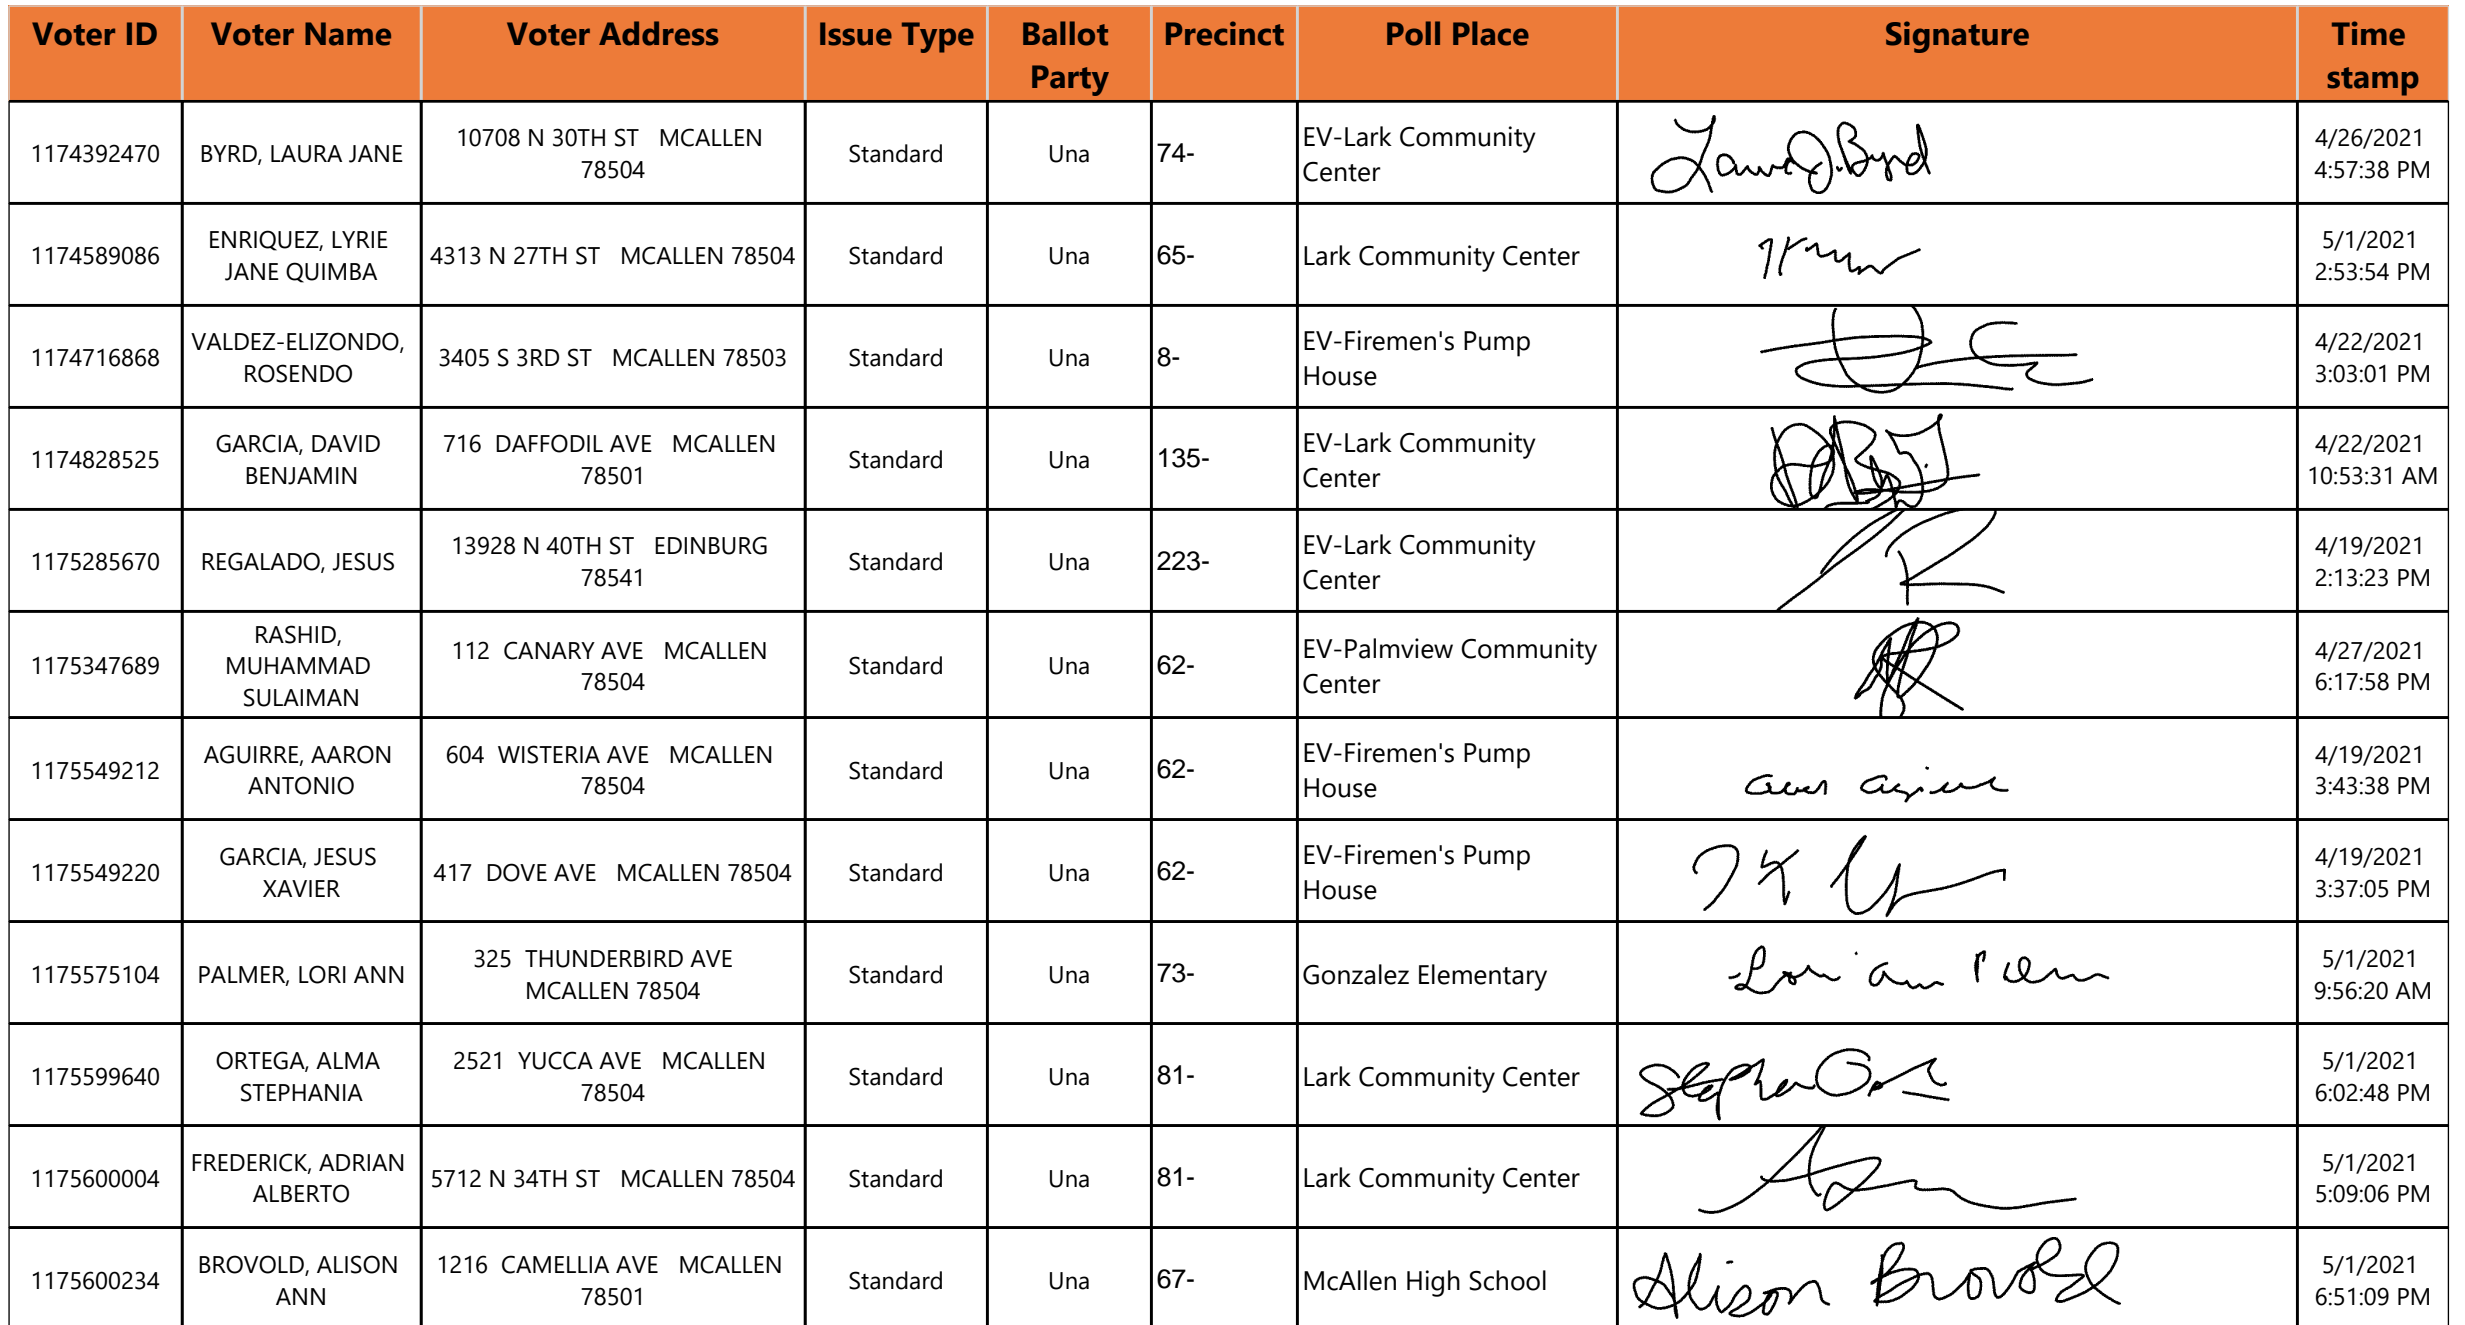 Voter ID Voter Name Voter Address Issue Type Ballot Party Precinct Poll Place Signature Time stamp
1174392470 BYRD, LAURA JANE 10708 N 30TH ST MCALLEN 78504 Standard Una 74- EV-Lark Community Center Laura J. Byrd 4/26/2021 4:57:38 PM
1174589086 ENRIQUEZ, LYRIE JANE QUIMBA 4313 N 27TH ST MCALLEN 78504 Standard Una 65- Lark Community Center 5/1/2021 2:53:54 PM
1174716868 VALDEZ-ELIZONDO, ROSENDO 3405 S 3RD ST MCALLEN 78503 Standard Una 8- EV-Firemen's Pump House 4/22/2021 3:03:01 PM
1174828525 GARCIA, DAVID BENJAMIN 716 DAFFODIL AVE MCALLEN 78501 Standard Una 135- EV-Lark Community Center 4/22/2021 10:53:31 AM
1175285670 REGALADO, JESUS 13928 N 40TH ST EDINBURG 78541 Standard Una 223- EV-Lark Community Center 4/19/2021 2:13:23 PM
1175347689 RASHID, MUHAMMAD SULAIMAN 112 CANARY AVE MCALLEN 78504 Standard Una 62- EV-Palmview Community Center 4/27/2021 6:17:58 PM
1175549212 AGUIRRE, AARON ANTONIO 604 WISTERIA AVE MCALLEN 78504 Standard Una 62- EV-Firemen's Pump House 4/19/2021 3:43:38 PM
1175549220 GARCIA, JESUS XAVIER 417 DOVE AVE MCALLEN 78504 Standard Una 62- EV-Firemen's Pump House 4/19/2021 3:37:05 PM
1175575104 PALMER, LORI ANN 325 THUNDERBIRD AVE MCALLEN 78504 Standard Una 73- Gonzalez Elementary Lori Ann 5/1/2021 9:56:20 AM
1175599640 ORTEGA, ALMA STEPHANIA 2521 YUCCA AVE MCALLEN 78504 Standard Una 81- Lark Community Center 5/1/2021 6:02:48 PM
1175600004 FREDERICK, ADRIAN ALBERTO 5712 N 34TH ST MCALLEN 78504 Standard Una 81- Lark Community Center 5/1/2021 5:09:06 PM
1175600234 BROVOLD, ALISON ANN 1216 CAMELLIA AVE MCALLEN 78501 Standard Una 67- McAllen High School Alison Brovold 5/1/2021 6:51:09 PM